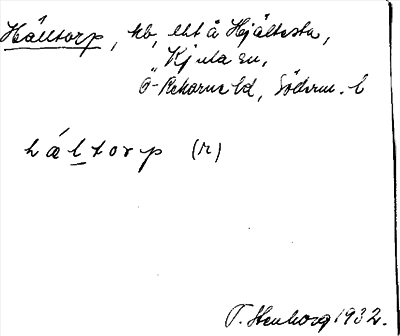 Hälltorp, hb, lht å Hjältesta,
" Kjula sn,
Ö-Rekarne hd, Söderm. l
háltorp (r)
T. Stenborg 1932.